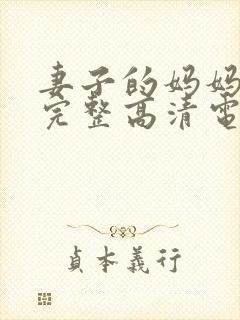 妻子的妈妈
完整高清電
貞本義行